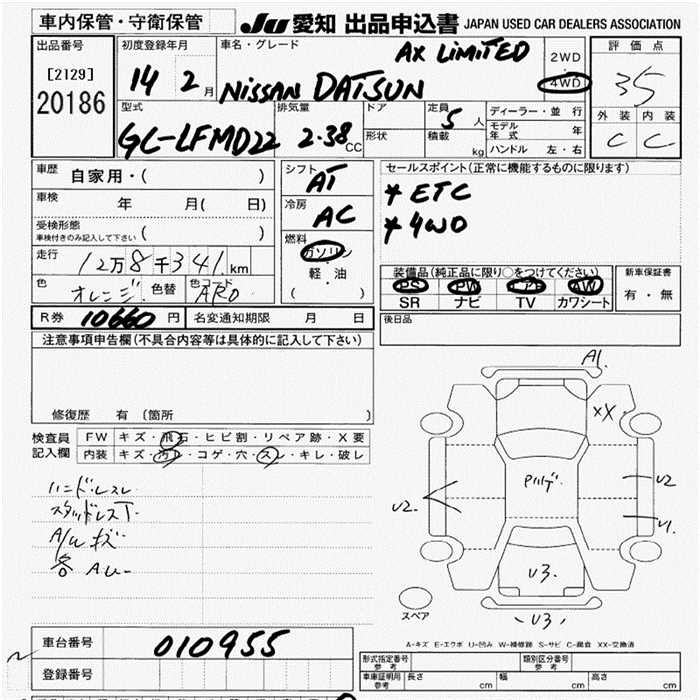 車内保管・守衛保管 JU 愛知 出品申込書 JAPAN USED CAR DEALERS ASSOCIATION
出品番号 初度登録年月 車名・グレード AX LIMITED 2WD 評価点
[2129] 14 2 月 NISSAN DATSUN 4WD 35
20186
型式 排気量 ドア 定員 5 人 ディーラー・並行 外装 内装
GC-LFMD22 2.38 CC 形状 積載 kg モデル年式 年 C C
ハンドル 左・右
車歴 自家用・( ) シフト AT セールスポイント(正常に機能するものに限ります)
車検 年 月( 日) 冷房 AC * ETC
受検形態 ( ) * 4WD
車検付きのみ記入して下さい
走行 12万8千341km 燃料 ガソリン 装備品(純正品に限り○をつけてください) 新車保証書
色 オレンジ 色替 色コード ARO 軽・油 PS PW エアB AW 有・無
( ) SR ナビ TV カワシート
R券 10660 円 名変通知期限 月 日 後日品
注意事項申告欄(不具合内容等は具体的に記入して下さい)
A1.
XX
修復歴 有 〔箇所 〕
検査員 FW キズ・飛石・ヒビ割・リペア跡・X要
記入欄 内装 キズ・汚れ・コゲ・穴・スレ・キレ・破レ
ハンドルスレ
スタッドレスT.
A/W キズ
U2. U2
U1.
U3.
スペア U3
A-キズ E-エクボ U-凹み W-補修跡 S-サビ C-腐食 XX-交換済
車台番号 010955
登録番号
形式指定番号 参考 類別区分番号 参考
車庫証明用 参考 長さ cm 幅 cm 高さ cm